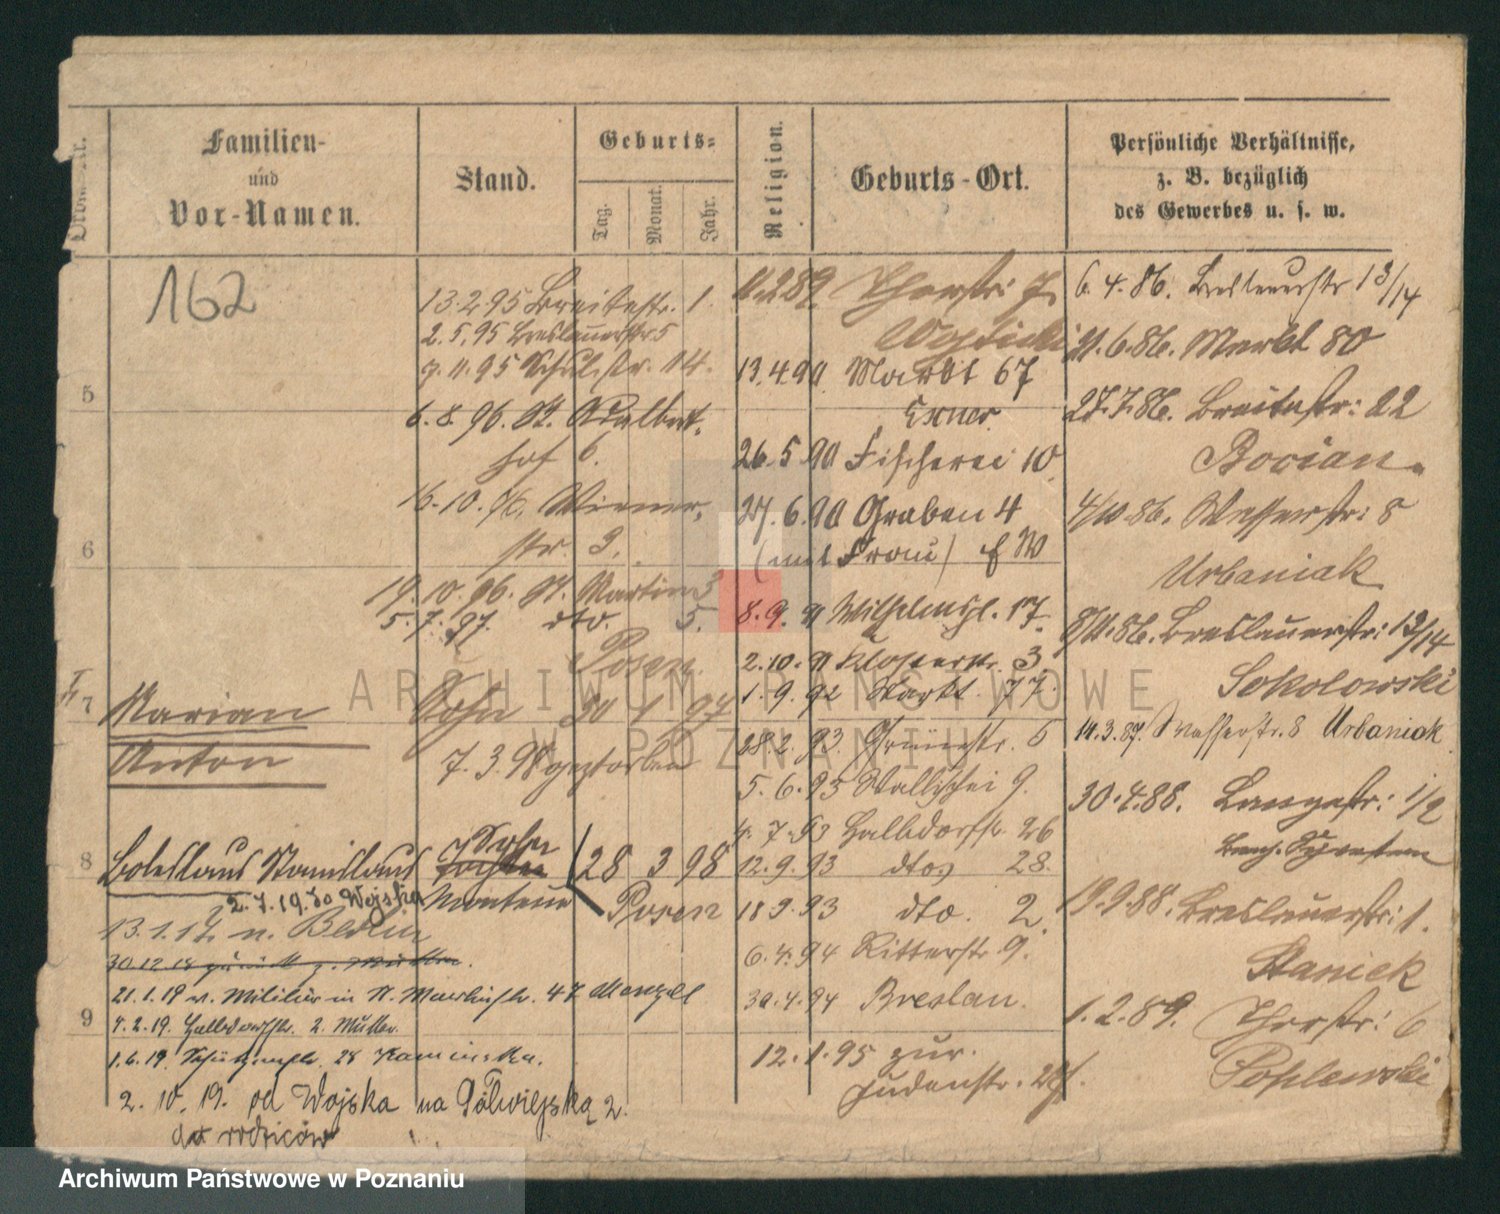 Familien-
und
Vor-Namen.
Stand.
Geburts-
Tag.
Monat.
Jahr.
Religion.
Geburts-Ort.
Persönliche Verhältnisse,
z. B. bezüglich
des Gewerbes u. s. w.
162
5
6
7
8
9
13.2.95 Breitestr. 1.
2.5.95 Breslauerstr 5
9.11.95 Schulstr. 14.
6.8.96. St. Adalbert-
hof 6.
16.10.96. Wiener-
str. 3.
19.10.96. St. Martin 3
5.7.97. dto. 5.
Posen.
Marian Sohn 30 1 97
Anton 7.3.98 gestorben
Boleslaus Stanislaus Sohn 28 3 98
Monteur Posen
2.7.19. do Wojska
13.1.17 n. Berlin
21.1.19 v. Militär in St. Martinstr. 47 Menzel
4.2.19. Halbdorfstr. 2. Mutter
1.6.19. Schützenstr. 28 Kaminska.
2. 10. 19. od Wojska na Półwiejską 2.
do rodziców
11.2.89. Thorstr: 7
Wojcicki
13.4.90 Markt 67
Exner
26.5.90 Fischerei 10
27.6.90 Graben 4
(mit Frau) EW
8.9.91 Wilhelmspl. 17.
2.10.91 Klosterstr. 3.
1.9.92 Markt 77.
28.2.93. Grünestr. 6
5.6.93 Wallischei 9.
4.7.93 Halbdorfstr. 26
12.9.93 dto 28.
18.9.93 dto. 2.
6.4.94 Ritterstr 9.
30.4.94 Breslau.
12.1.95 zur.
Judenstr.
6.4.86. Breslauerstr 13/14
21.6.86. Markt 80
27.7.86. Breitestr: 22
Bocian.
4/10.86. Wasserstr: 8
Urbaniak
8/11.86. Breslauerstr: 13/14
Sokolowski
14.3.87. Wasserstr. 8 Urbaniak
30.4.88. Langestr: 1/2
19.9.88. Breslauerstr: 1.
Staniek
1.2.89. Thorstr: 6
Pohlewski
ARCHIWUM PAŃSTWOWE
W POZNANIU
Archiwum Państwowe w Poznaniu